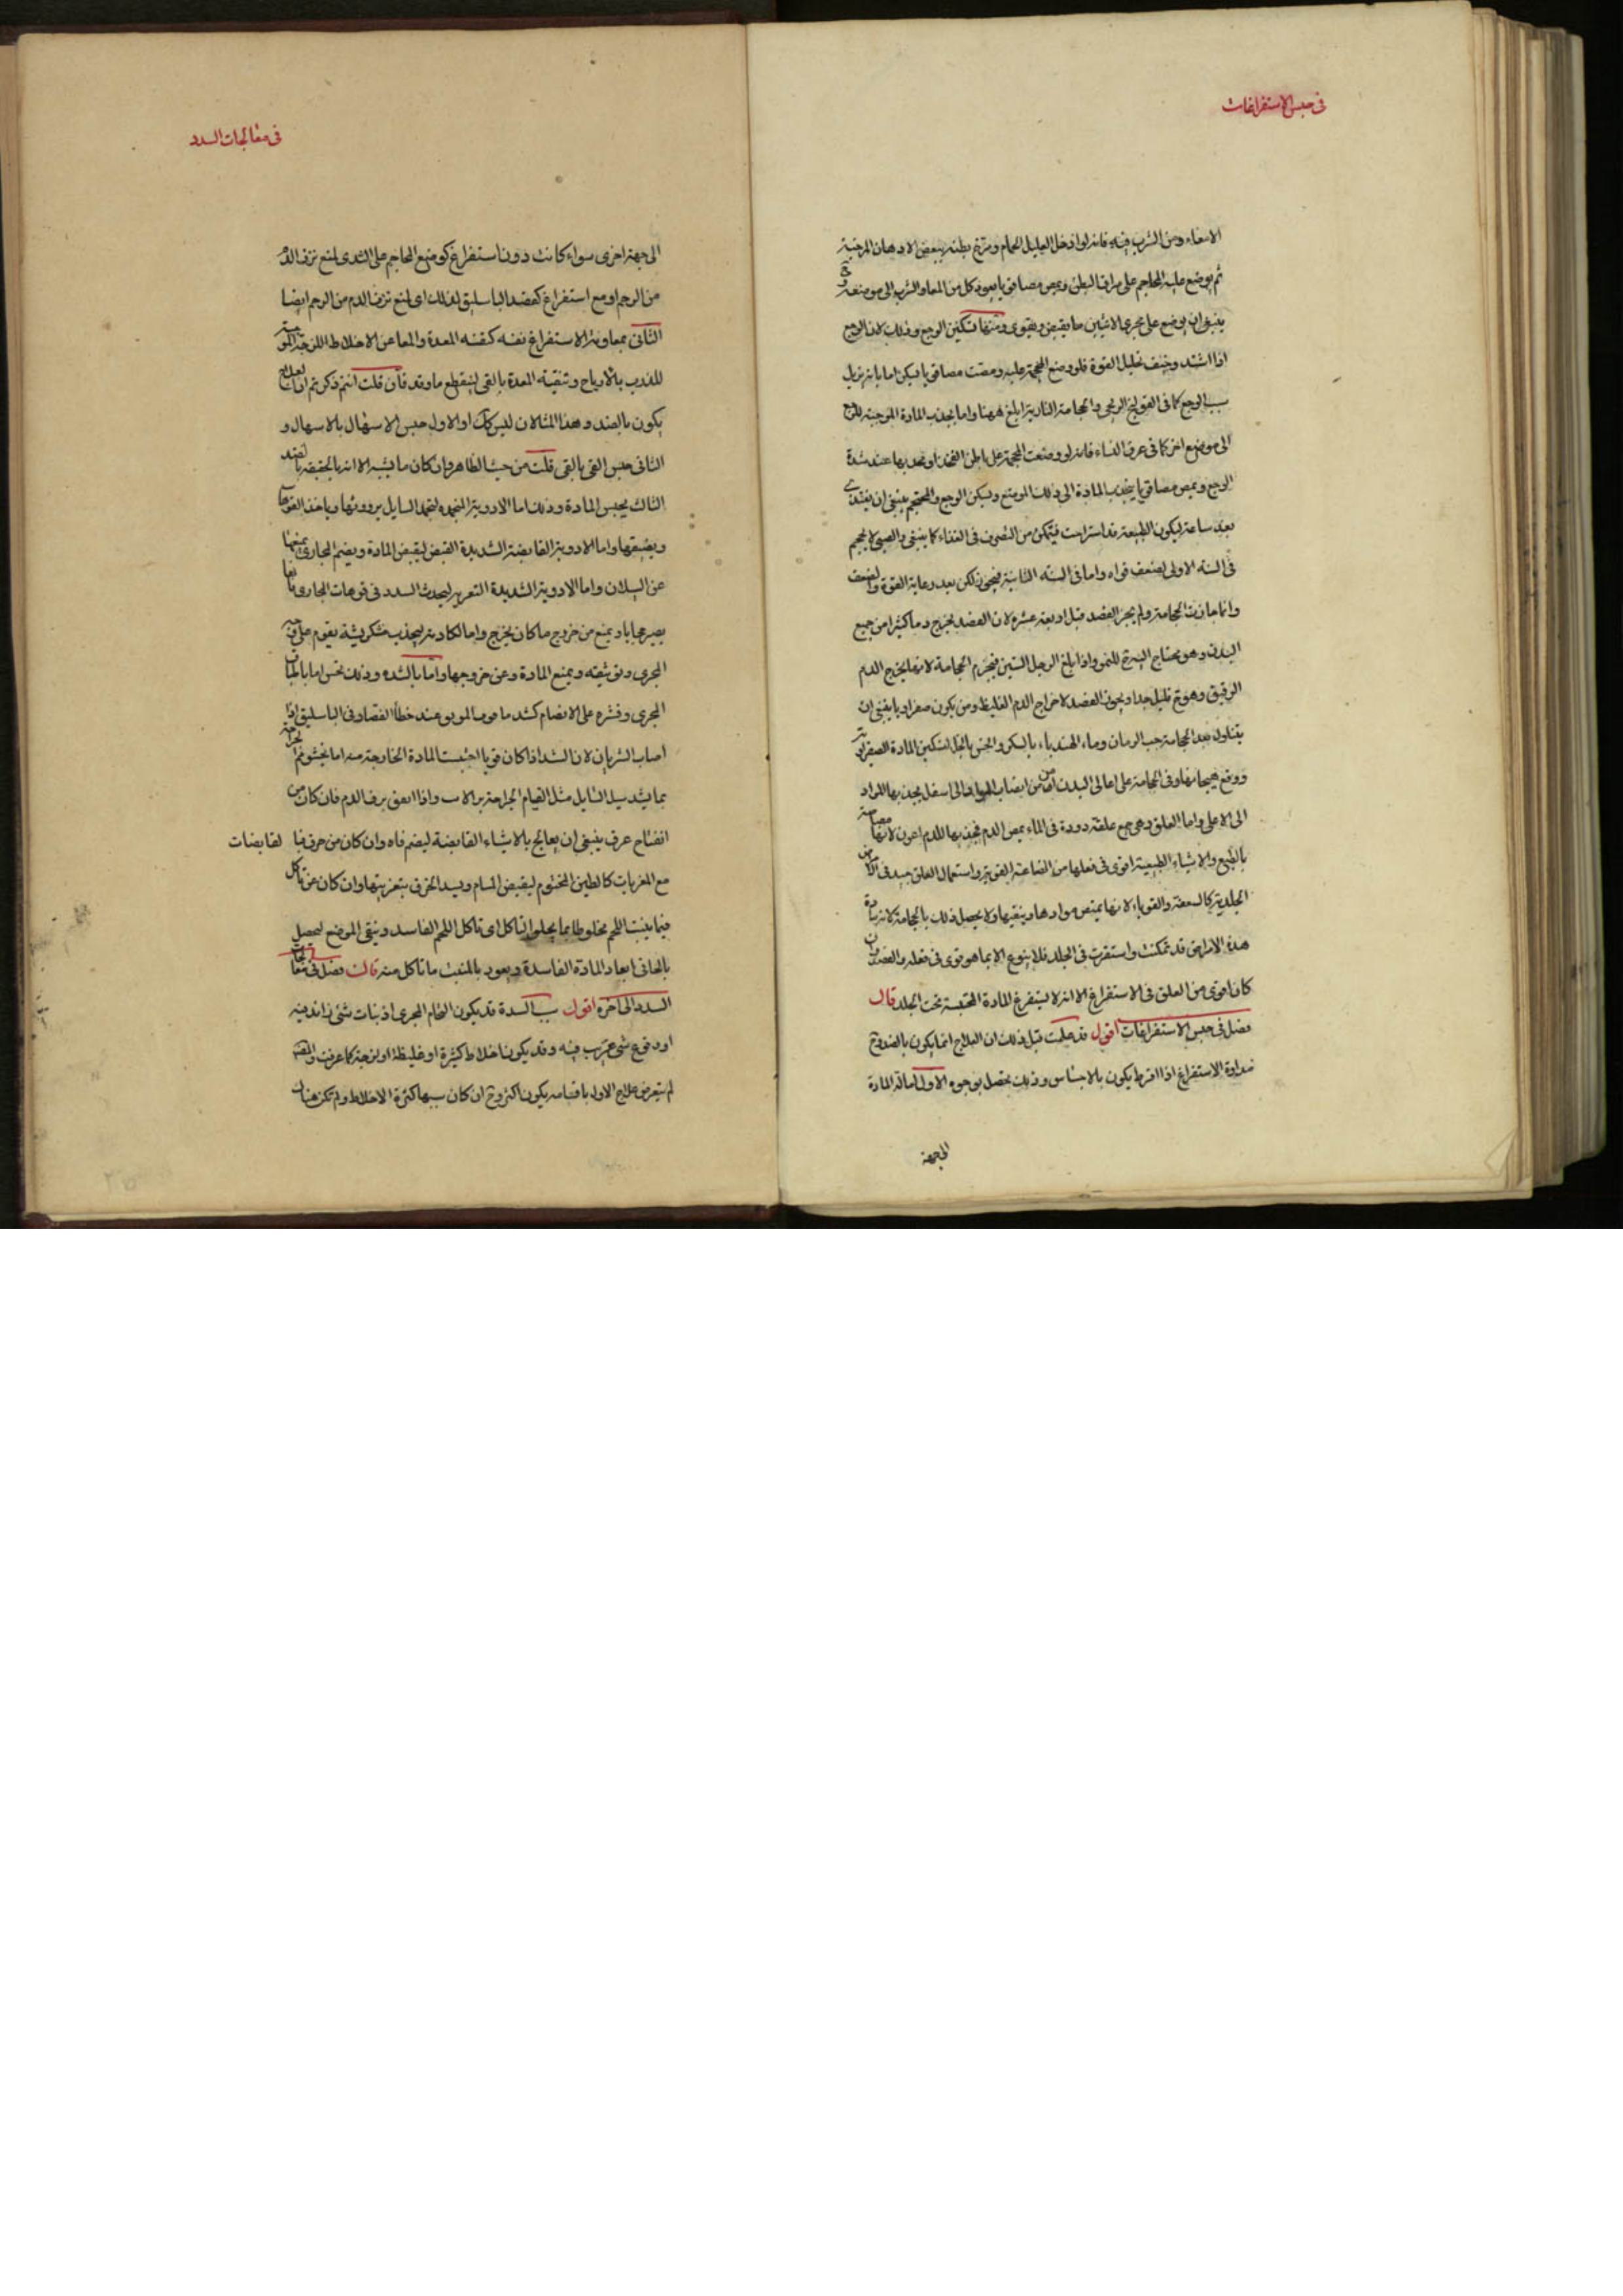 في حبس الاستفراغات
الامعاء ومن الثرب فيه فانه لو ادخل العليل الحمام ومرخ بطنه ببعض الادهان المرخية
ثم يوضع عليه المحاجم على مراق البطن ويمص مصا قويا يعود كل من المعا والثرب الى موضعه
ينبغي ان يوضع على مجرى الانثيين ما يقبض ويقوى ومنها تسكين الوجع وذلك لان الوجع
اذا اشتد وخيف تحليل القوة فلو وضع المحجمة عليه ومصت مصا قويا يسكن اما بانه يزيل
سبب الوجع كما في القولنج الريحي والحجامة النارية ابلغ ههنا واما يجذب المادة الموجبة للوجع
الى موضع اخر كما في عرق النساء فانه لو وضعت المحجمة على باطن الفخذ او نحو بها عند شدة
الوجع ويمص مصا قويا ينجذب المادة الى ذلك الموضع ويسكن الوجع والمحتجم ينبغي ان يغتذى
بعد ساعة ليكون الطبيعة قد استراحت فيتمكن من التصرف في الغذاء كما ينبغي والصبي لا يحجم
في السنة الاولى لضعف قواه واما في السنة الثانية فيجوز لكن بعد رعاية القوة والضعف
وانما جازت الحجامة ولم يجز الفصد قبل اربعة عشرة لان الفصد يخرج دما كثيرا من جميع
البدن وهو محتاج اليه ح للنمو واذا بلغ الرجل الستين فيحرم الحجامة لانها يخرج الدم
الرقيق وهو ح قليل جدا ويجوز الفصد لاخراج الدم الغليظ ومن يكون صفراويا ينبغي ان
يتناول بعد الحجامة حب الرمان وماء الهندباء بالسكر والخس بالخل لتسكين المادة الصفراوية
ووقع هيجانها وفي الحجامة على اعالي البدن امان من انصباب المواد الى اسفل يجذبها المواد
الى الاعلى واما العلق وهي جمع علقة دودة في الماء يمص الدم فجذبها للدم اعون لانها مصاصة
بالطبع والاشياء الطبيعية اقوى في فعلها من الصناعية القوية واستعمال العلق جيد في الامراض
الجلدية كالسعفة والقوباء لانها يمتص موادها وينقيها ولا يحصل ذلك بالحجامة لان مادة
هذه الامراض قد تمكنت واستقرت في الجلد فلا ينزع الا بما هو قوى في فعله والفصد وان
كان اقوى من العلق في الاستفراغ الا انه لا يستفرغ المادة المحتبسة تحت الجلد قال
فصل في حبس الاستفراغات اقول قد علمت قبل ذلك ان العلاج انما يكون بالضد وح
مداواة الاستفراغ اذا افرط يكون بالاحتباس وذلك يحصل بوجوه الاول امالة المادة
الى جهة
في معالجات السدد
الى جهة اخرى سواء كانت دون استفراغ كوضع المحاجم على الثدى لمنع نزف الدم
من الرحم او مع استفراغ كفصد الباسليق لذلك اى لمنع نزف الدم من الرحم ايضا
الثاني بمعاونة الاستفراغ نفسه كتنقية المعدة والمعا عن الاخلاط اللزجة المكونة
للذرب بالايارج وتنقية المعدة بالقى لينقطع مادته فان قلت انتم ذكرتم ان العلاج
يكون بالضد وهذا المثالان ليس كك اذ الاول حبس الاسهال بالاسهال و
الثاني حبس القى بالقى قلت من حيث الظاهر وان كان ما يشبه الا انه بالحقيقة بالضد
الثالث يحبس المادة وذلك اما الادوية المنجمده لتجمد السايل ببرودتها وياخذ الفوهات
ويضيقها واما الادوية القابضة الشديدة القبض ليقبض المادة ويضم المجارى يمنعها
عن السيلان واما الادوية الشديدة التغرية ليحدث السدد في فوهات المجارى
يصير حجابا ويمنع من خروج ما كان يخرج واما الكاوية ليحدث خشكريشة يقوم على
المجرى وتوثيقه ويمنع المادة وعن خروجها واما بالشد وذلك يحبس اما باطباق
المجرى وقسره على الانضمام كشد ما فوق المرفق عند خطأ الفصاد في الباسليق اذا
اصاب الشريان لان الشد اذا كان قويا احتبست المادة الخارجة منه اما بحشو فم الجراحة
بما يسد سبيل السايل مثل القيام الجراحة بوبر الارنب واذا اتفق نزف الدم فان كان من
انفتاح عرق ينبغي ان يعالج بالاشياء القابضة ليضم فاه وان كان من خرق فبا لقابضات
مع المغريات كالطين المختوم ليقبض المسام ويسد الخرق بتغريتها وان كان عن تاكل
فبما ينبت اللحم مخلوطا بما يجلو التاكل اى تاكل اللحم الفاسد وينقى الموضع ليحصل
بالجالى ابعاد المادة الفاسدة ويعود بالمنبت ما تاكل منه قال فصل في معالجات
السدد الى اخره اقول سبب السدة قد يكون التحام المجرى او نبات شئ زائد فيه
او وقوع شئ غريب فيه وقد يكون اخلاط كثيرة او غليظة او لزجة كما عرفت والمص
لم يتعرض لعلاج الاول باقسامه يكون اكثر وح ان كان سببها كثرة الاخلاط ولم تكن هناك